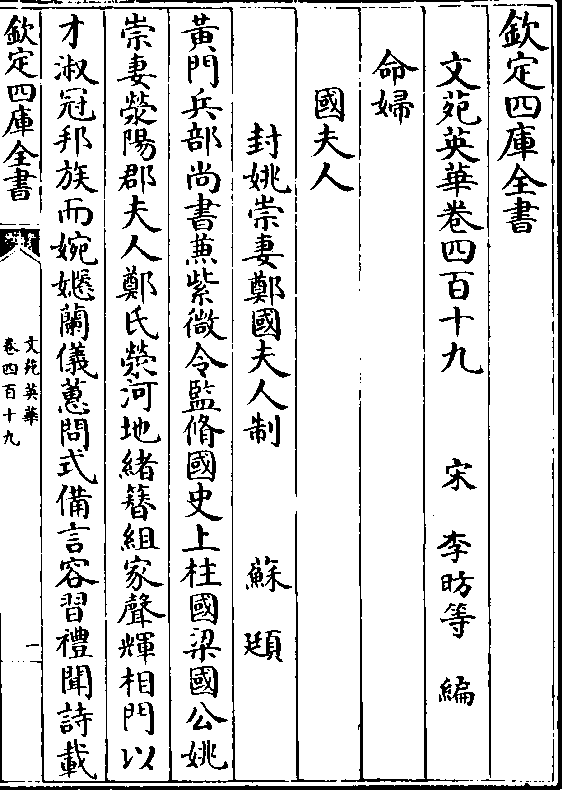 欽定四庫全書
文苑英華卷四百十九 宋 李昉等 編
命婦
國夫人
封姚崇妻鄭國夫人制 蘇頲
黃門兵部尚書兼紫微令監脩國史上柱國梁國公姚
崇妻滎陽郡夫人鄭氏滎河地緒簪組家聲輝相門以
才淑冠邦族而婉嬺蘭儀蕙問式備言容習禮聞詩載
欽定四庫全書
文苑英華
卷四百十九
一